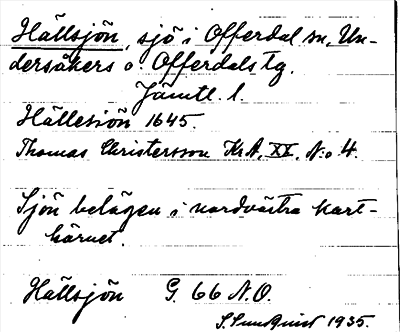 Hällsjön, sjö i Offerdal sn, Un-
dersåkers o. Offerdals tg.
Jämtl. l.
Hällesiön 1645.
Thomas Christersson KrA, XX, No 4.
Sjön belägen i nordvästra kart-
hörnet.
Hällsjön G. 66 N.O.
S. Sundquist 1935.